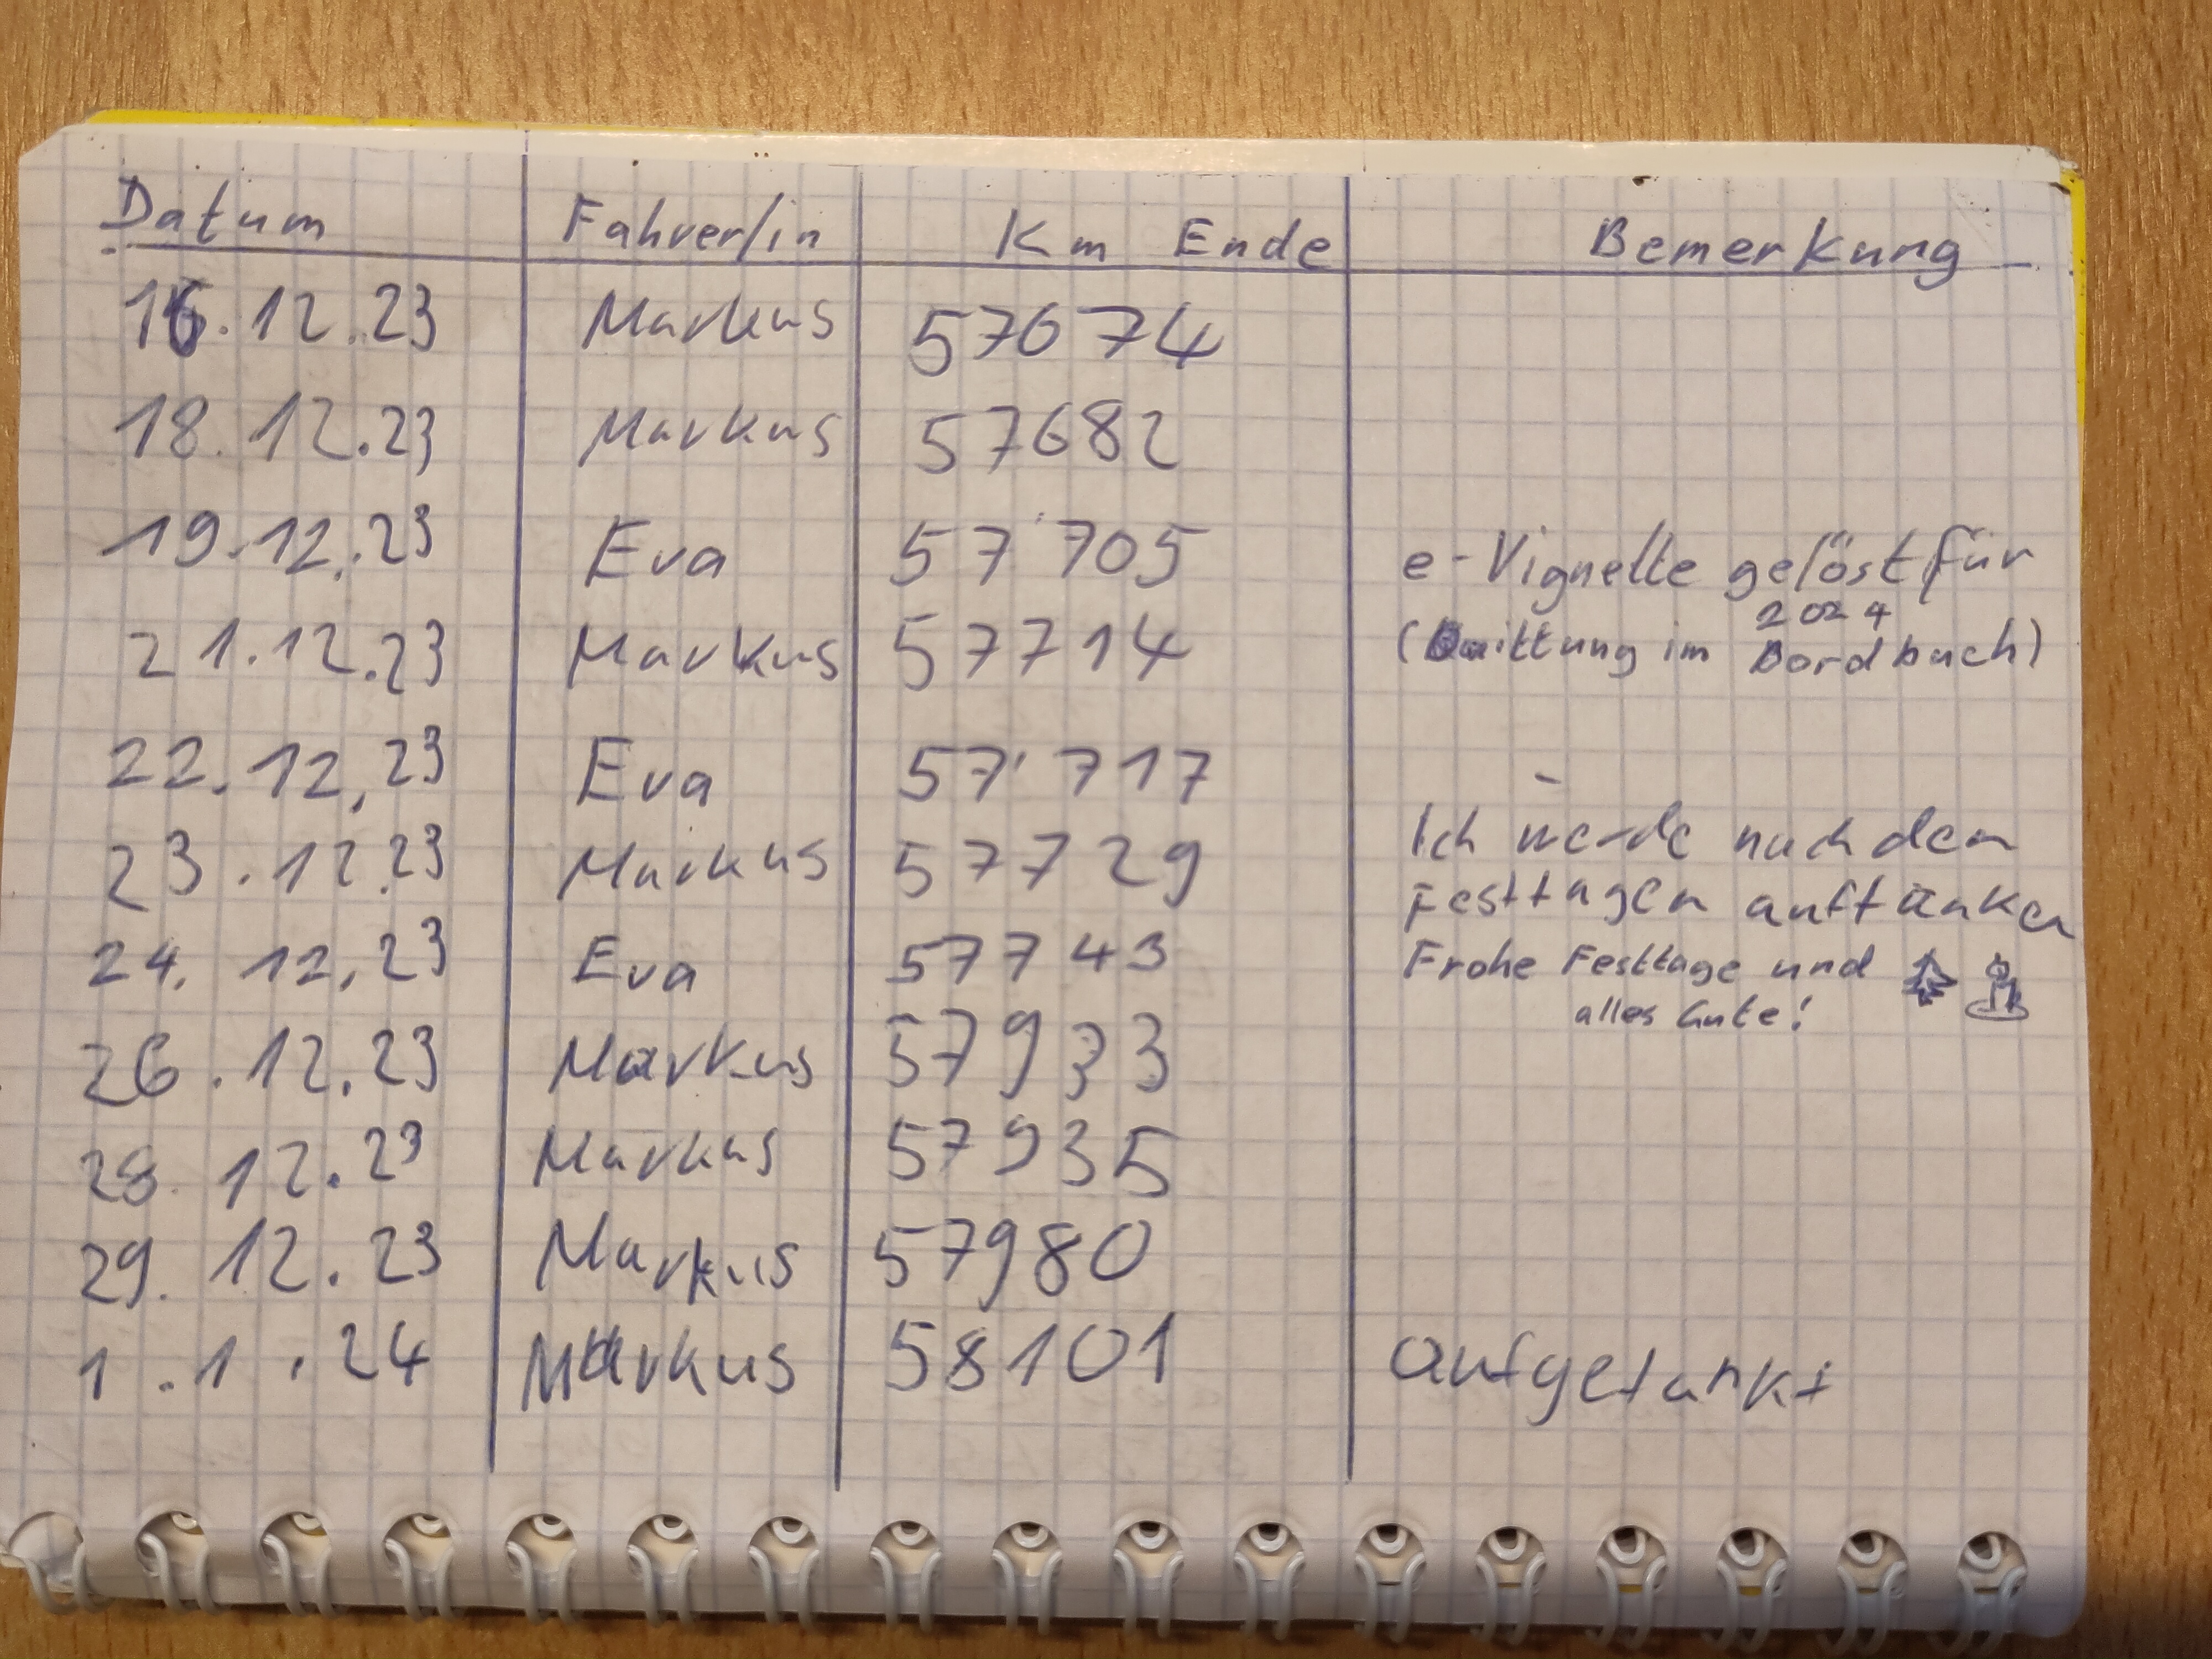 Datum Fahrer/in Km Ende Bemerkung
16.12.23 Markus 57674
18.12.23 Markus 57682
19.12.23 Eva 57'705 e-Vignette gelöst für
2024
21.12.23 Markus 57714 (Quittung im Bordbuch)
22.12.23 Eva 57'717
23.12.23 Markus 57729 Ich werde nach den
Festtagen auftanken
24.12.23 Eva 57743 Frohe Festtage und
alles Gute!
26.12.23 Markus 57933
28.12.23 Markus 57935
29.12.23 Markus 57980
1.1.24 Markus 58101 aufgetankt